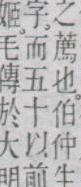 之薦也伯仲生
字而五十以前
姬毛傳於大明